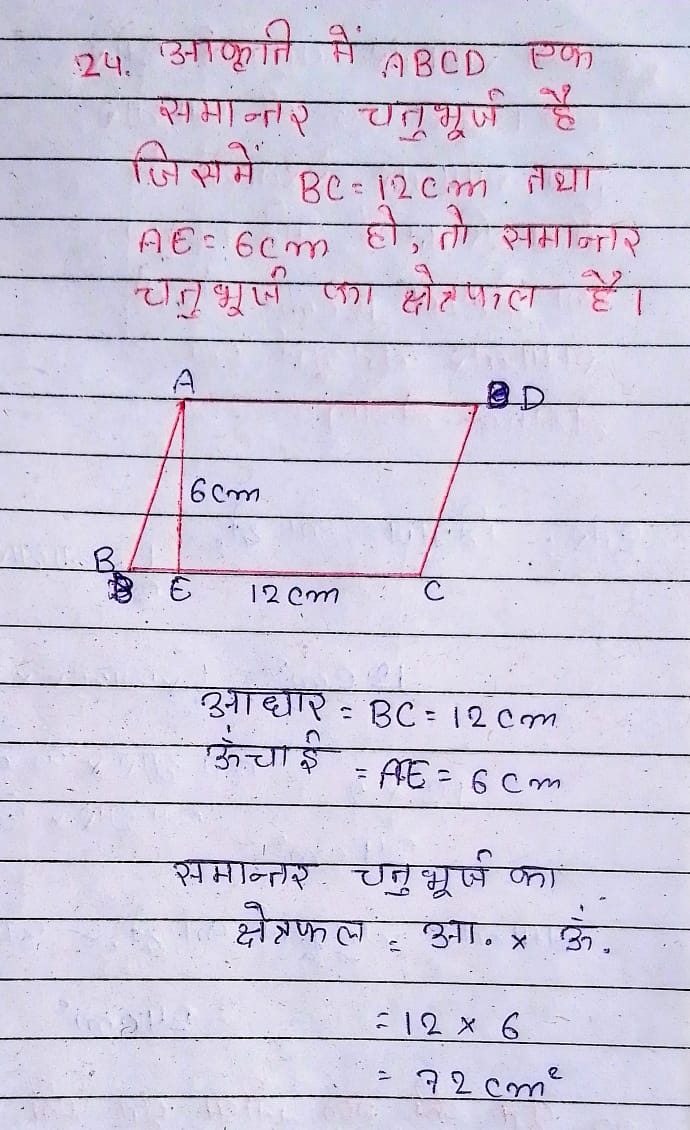 24. आकृति में ABCD एक
समान्तर चतुभूर्ज है
जिसमें BC = 12cm तथा
AE = 6cm हो, तो समान्तर
चतुभूर्ज का क्षेत्रफल है।
A D
6cm
B
E 12cm C
आधार = BC = 12cm
ऊँचाई = AE = 6cm
समान्तर चतुभूर्ज का
क्षेत्रफल = आ. × ऊँ.
= 12 × 6
= 72cm²